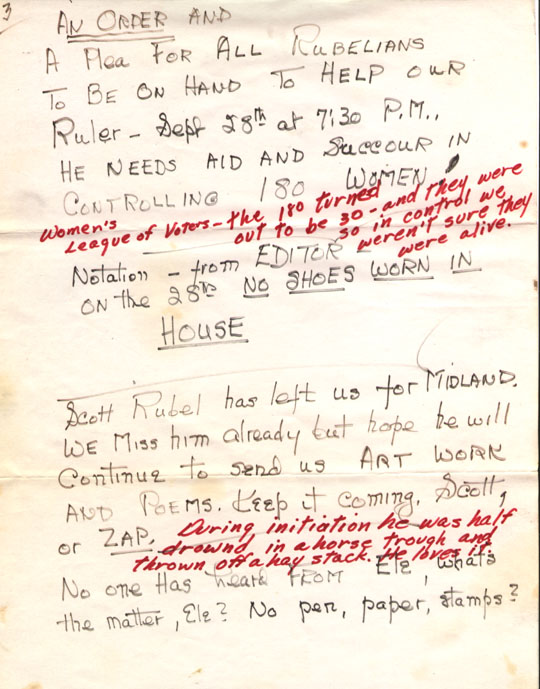 3
AN ORDER AND
A Plea FOR ALL RUBELIANS
TO BE ON HAND TO HELP OUR
Ruler - Sept 28th at 7:30 P.M.,
HE NEEDS AID AND SUCCOUR IN
CONTROLLING 180 WOMEN!
Women's
League of Voters - the 180 turned
out to be 30 - and they were
so in control we
weren't sure they
were alive.
Notation - from EDITOR
ON the 28th NO SHOES WORN IN
HOUSE
Scott Rubel has left us for MIDLAND.
WE Miss him already but hope he will
Continue to send us ART WORK
AND POEMS. Keep it coming, Scott,
or ZAP.
During initiation he was half
drownd in a horse trough and
thrown off a hay stack. He loves it.
No one Has heard FROM Ele, what's
the matter, Ele? No pen, paper, stamps?